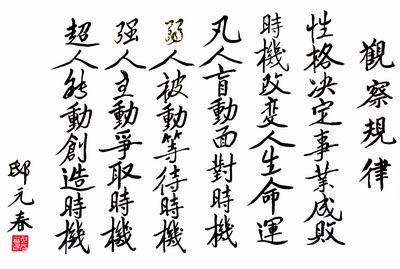 觀察規律
性格决定事業成敗
時機改變人生命運
凡人盲動面對時機
弱人被動等待時機
强人主動爭取時機
超人能動創造時機
邸元春